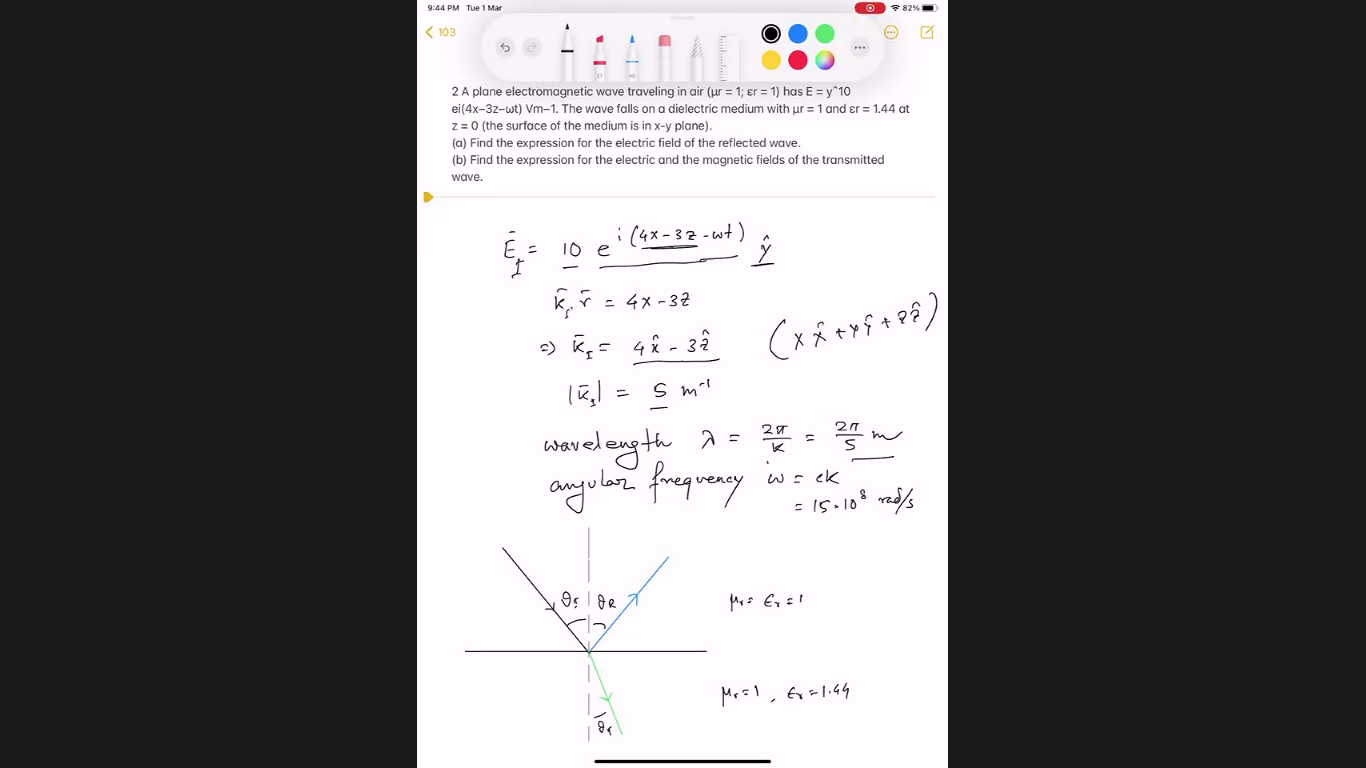 9:44 PM Tue 1 Mar
82%
103
2 A plane electromagnetic wave traveling in air (μr = 1; εr = 1) has E = y^10
ei(4x−3z−ωt) Vm−1. The wave falls on a dielectric medium with μr = 1 and εr = 1.44 at
z = 0 (the surface of the medium is in x-y plane).
(a) Find the expression for the electric field of the reflected wave.
(b) Find the expression for the electric and the magnetic fields of the transmitted
wave.
Ē_I = 10 e^{i(4x−3z−ωt)} ŷ
k̄_I . r̄ = 4x−3z
⇒ k̄_I = 4x̂ − 3ẑ (x x̂ + y ŷ + z ẑ)
|k̄_I| = 5 m⁻¹
wavelength λ = 2π/k = 2π/5 m
angular frequency ω = ck
= 15·10⁸ rad/s
θ_I θ_R
μr = εr = 1
μr = 1 , εr = 1.44
θ_T